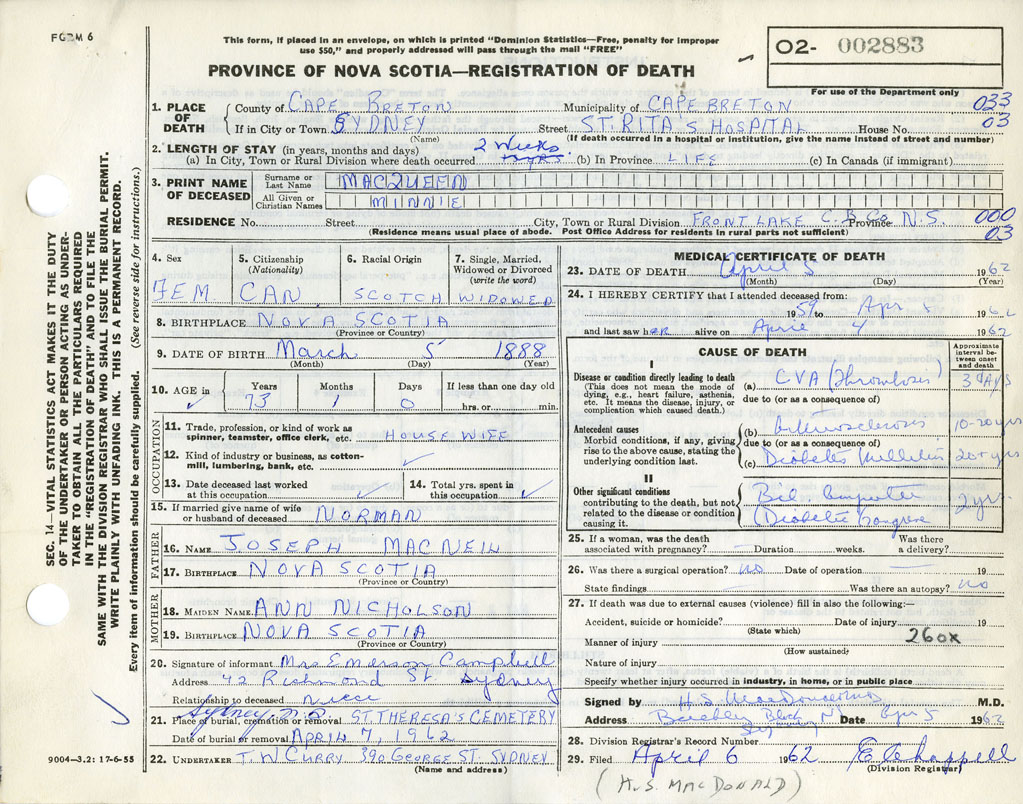 FORM 6
This form, if placed in an envelope, on which is printed "Dominion Statistics—Free, penalty for improper
use $50," and properly addressed will pass through the mail "FREE"
PROVINCE OF NOVA SCOTIA—REGISTRATION OF DEATH
02- 002883
For use of the Department only
1. PLACE OF DEATH County of CAPE BRETON Municipality of CAPE BRETON 033
If in City or Town SYDNEY Street ST. RITA'S HOSPITAL House No. 03
(Name) (If death occurred in a hospital or institution, give the name instead of street and number)
2. LENGTH OF STAY (in years, months and days) 2 Weeks
(a) In City, Town or Rural Division where death occurred (b) In Province LIFE (c) In Canada (if immigrant)
3. PRINT NAME OF DECEASED
Surname or Last Name MACQUEEN
All Given or Christian Names MINNIE
RESIDENCE No. Street City, Town or Rural Division FRONT LAKE C.B.Co. Province N.S. 000
(Residence means usual place of abode. Post Office Address for residents in rural parts not sufficient) 03
4. Sex FEM
5. Citizenship (Nationality) CAN.
6. Racial Origin SCOTCH
7. Single, Married, Widowed or Divorced (write the word) WIDOWED
8. BIRTHPLACE NOVA SCOTIA
(Province or Country)
9. DATE OF BIRTH March 5 1888
(Month) (Day) (Year)
10. AGE in Years 73 Months 1 Days 0 If less than one day old hrs. or min.
OCCUPATION
11. Trade, profession, or kind of work as spinner, teamster, office clerk, etc. HOUSE WIFE
12. Kind of industry or business, as cotton-mill, lumbering, bank, etc. ✓
13. Date deceased last worked at this occupation ✓
14. Total yrs. spent in this occupation ✓
15. If married give name of wife or husband of deceased NORMAN
FATHER
16. NAME JOSEPH MACNEIL
17. BIRTHPLACE NOVA SCOTIA
(Province or Country)
MOTHER
18. MAIDEN NAME ANN NICHOLSON
19. BIRTHPLACE NOVA SCOTIA
(Province or Country)
20. Signature of informant Mrs Emerson Campbell
Address 42 Richmond St. Sydney
Relationship to deceased niece
Sydney N.S.
21. Place of burial, cremation or removal ST. THERESA'S CEMETERY
Date of burial or removal APRIL 7, 1962
22. UNDERTAKER T.W. CURRY 390 GEORGE ST. SYDNEY
(Name and address)
MEDICAL CERTIFICATE OF DEATH
23. DATE OF DEATH April 5 1962
(Month) (Day) (Year)
24. I HEREBY CERTIFY that I attended deceased from:
1959 to Apr 1962
and last saw her alive on April 4 1962
CAUSE OF DEATH
Approximate interval between onset and death
I
Disease or condition directly leading to death
(This does not mean the mode of dying, e.g., heart failure, asthenia, etc. It means the disease, injury, or complication which caused death.)
(a) CVA (Thrombosis) 3 days
due to (or as a consequence of)
Antecedent causes
Morbid conditions, if any, giving rise to the above cause, stating the underlying condition last.
(b) Arteriosclerosis 10-20 yrs
due to (or as a consequence of)
(c) Diabetes Mellitus 20+ yrs
II
Other significant conditions
contributing to the death, but not related to the disease or condition causing it.
Bil. Amputee 2 yrs.
(Diabetic Gangrene
25. If a woman, was the death associated with pregnancy? — Duration weeks. Was there a delivery?
26. Was there a surgical operation? no Date of operation — 19
State findings Was there an autopsy? no
27. If death was due to external causes (violence) fill in also the following:—
Accident, suicide or homicide? Date of injury 19
(State which)
Manner of injury 260x
(How sustained)
Nature of injury
Specify whether injury occurred in industry, in home, or in public place
Signed by H.S. MacDonald M.D.
Address Block Sydney NS Date Apr 5 1962
28. Division Registrar's Record Number
29. Filed April 6 1962 E Chappell
(Division Registrar)
(H.S. MACDONALD)
SEC. 14—VITAL STATISTICS ACT MAKES IT THE DUTY
OF THE UNDERTAKER OR PERSON ACTING AS UNDER-
TAKER TO OBTAIN ALL THE PARTICULARS REQUIRED
IN THE "REGISTRATION OF DEATH" AND TO FILE THE
SAME WITH THE DIVISION REGISTRAR WHO SHALL ISSUE THE BURIAL PERMIT.
WRITE PLAINLY WITH UNFADING INK. THIS IS A PERMANENT RECORD.
Every item of information should be carefully supplied. (See reverse side for instructions.)
9004—3.2: 17-6-55